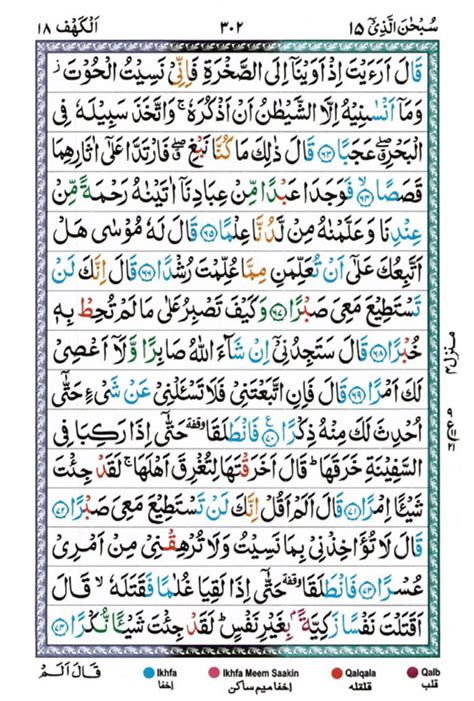 سُبْحٰنَ الَّذِیْۤ ۱۵ ۳۰۲ اَلْكَهْف ۱۸
قَالَ اَرَءَیْتَ اِذْ اَوَیْنَاۤ اِلَى الصَّخْرَةِ فَاِنِّیْ نَسِیْتُ الْحُوْتَ ؗ
وَمَاۤ اَنْسٰىنِیْهُ اِلَّا الشَّیْطٰنُ اَنْ اَذْكُرَهٗ ۚ وَاتَّخَذَ سَبِیْلَهٗ فِی
الْبَحْرِ ۖۗ عَجَبًا ﴿۶۳﴾ قَالَ ذٰلِكَ مَا كُنَّا نَبْغِ ۖۗ فَارْتَدَّا عَلٰۤى اٰثَارِهِمَا
قَصَصًا ﴿۶۴﴾ فَوَجَدَا عَبْدًا مِّنْ عِبَادِنَاۤ اٰتَیْنٰهُ رَحْمَةً مِّنْ
عِنْدِنَا وَعَلَّمْنٰهُ مِنْ لَّدُنَّا عِلْمًا ﴿۶۵﴾ قَالَ لَهٗ مُوْسٰى هَلْ
اَتَّبِعُكَ عَلٰۤى اَنْ تُعَلِّمَنِ مِمَّا عُلِّمْتَ رُشْدًا ﴿۶۶﴾ قَالَ اِنَّكَ لَنْ
تَسْتَطِیْعَ مَعِیَ صَبْرًا ﴿۶۷﴾ وَكَیْفَ تَصْبِرُ عَلٰى مَا لَمْ تُحِطْ بِهٖ
خُبْرًا ﴿۶۸﴾ قَالَ سَتَجِدُنِیْۤ اِنْ شَآءَ اللّٰهُ صَابِرًا وَّلَاۤ اَعْصِیْ
لَكَ اَمْرًا ﴿۶۹﴾ قَالَ فَاِنِ اتَّبَعْتَنِیْ فَلَا تَسْـَٔلْنِیْ عَنْ شَیْءٍ حَتّٰۤى
اُحْدِثَ لَكَ مِنْهُ ذِكْرًا ﴿۷۰﴾ فَانْطَلَقَا ۥ وقفة حَتّٰۤى اِذَا رَكِبَا فِی
السَّفِیْنَةِ خَرَقَهَا ؕ قَالَ اَخَرَقْتَهَا لِتُغْرِقَ اَهْلَهَا ۚ لَقَدْ جِئْتَ
شَیْـًٔا اِمْرًا ﴿۷۱﴾ قَالَ اَلَمْ اَقُلْ اِنَّكَ لَنْ تَسْتَطِیْعَ مَعِیَ صَبْرًا ﴿۷۲﴾
قَالَ لَا تُؤَاخِذْنِیْ بِمَا نَسِیْتُ وَلَا تُرْهِقْنِیْ مِنْ اَمْرِیْ
عُسْرًا ﴿۷۳﴾ فَانْطَلَقَا ۥ وقفة حَتّٰۤى اِذَا لَقِیَا غُلٰمًا فَقَتَلَهٗ ۙ قَالَ
اَقَتَلْتَ نَفْسًا زَكِیَّةًۢ بِغَیْرِ نَفْسٍ ؕ لَقَدْ جِئْتَ شَیْـًٔا نُّكْرًا ﴿۷۴﴾
منزل ۴
قَالَ اَلَمْ
Ikhfa Ikhfa Meem Saakin Qalqala Qalb
اخفا اخفا میم ساکن قلقلہ قلب